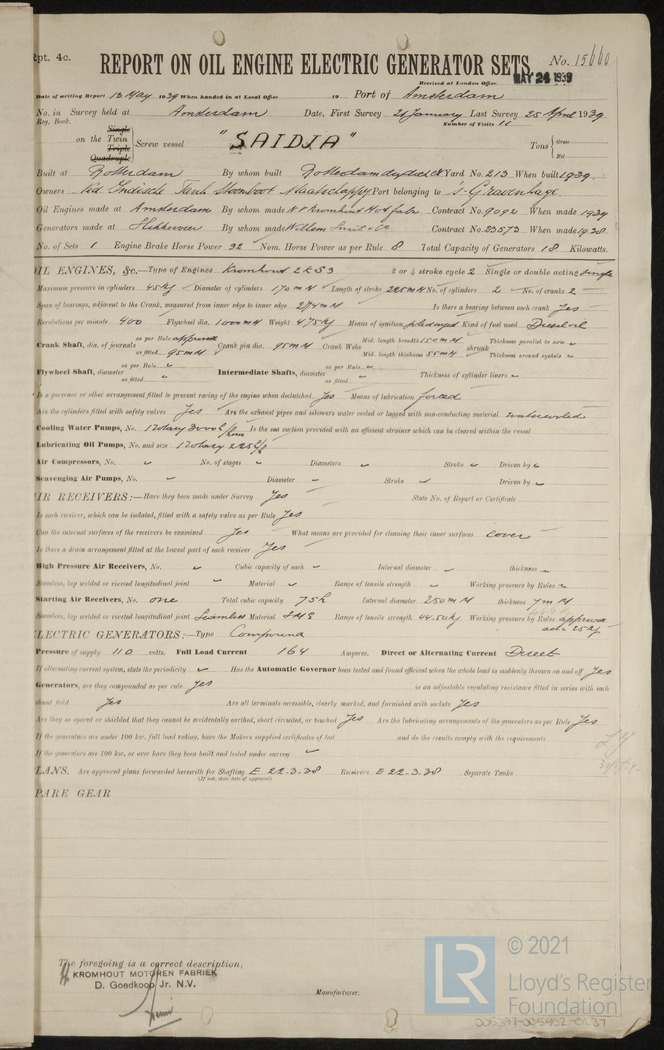 Rpt. 4c.
REPORT ON OIL ENGINE ELECTRIC GENERATOR SETS. No. 15660
Received at London Office MAY 24 1939
Date of writing Report 13 May 1939 When handed in at Local Office 19 Port of Amsterdam
No. in Survey held at Amsterdam Date, First Survey 21 January Last Survey 25 April 1939
Reg. Book. Number of Visits 11
Single
on the Twin Screw vessel "SAIDJA" Tons Gross
Triple
Quadruple Net
Built at Rotterdam By whom built Rotterdam drydock Yard No. 213 When built 1939.
Owners Ned Indische Tank Stoomboot Maatschappy Port belonging to 's-Gravenhage
Oil Engines made at Amsterdam By whom made Kromhout Contract No. 9092 When made 1939
Generators made at Slikkerveer By whom made Willem Smit & Co Contract No. 23573 When made 1938
No. of Sets 1 Engine Brake Horse Power 32 Nom. Horse Power as per Rule 8 Total Capacity of Generators 18 Kilowatts.
OIL ENGINES, &c.—Type of Engines Kromhout 2 or 4 stroke cycle 2 Single or double acting Single
Maximum pressure in cylinders 45 Kg Diameter of cylinders 170 mM Length of stroke 225 mM No. of cylinders 2 No. of cranks 2
Span of bearings, adjacent to the Crank, measured from inner edge to inner edge 224 mM Is there a bearing between each crank Yes
Revolutions per minute 400 Flywheel dia. 1000 mM Weight 475 Kg Means of ignition Kind of fuel used Diesel oil
Crank Shaft, dia. of journals as per Rule approved Crank pin dia. 95 mM Crank Webs Mid. length breadth 150 mM shrunk Thickness parallel to axis
as fitted 95 mM Mid. length thickness 55 mM Thickness around eyehole
Flywheel Shaft, diameter as per Rule Intermediate Shafts, diameter as per Rule Thickness of cylinder liners
as fitted as fitted
Is a governor or other arrangement fitted to prevent racing of the engine when declutched Yes Means of lubrication forced
Are the cylinders fitted with safety valves Yes Are the exhaust pipes and silencers water cooled or lagged with non-conducting material watercooled
Cooling Water Pumps, No. 1 Rotary Is the sea suction provided with an efficient strainer which can be cleared within the vessel
Lubricating Oil Pumps, No. and size 1 Rotary
Air Compressors, No. No. of stages Diameters Stroke Driven by
Scavenging Air Pumps, No. Diameter Stroke Driven by
AIR RECEIVERS:—Have they been made under Survey Yes State No. of Report or Certificate
Is each receiver, which can be isolated, fitted with a safety valve as per Rule Yes
Can the internal surfaces of the receivers be examined Yes What means are provided for cleaning their inner surfaces cover
Is there a drain arrangement fitted at the lowest part of each receiver Yes
High Pressure Air Receivers, No. Cubic capacity of each Internal diameter thickness
Seamless, lap welded or riveted longitudinal joint Material Range of tensile strength Working pressure by Rules
Starting Air Receivers, No. one Total cubic capacity Internal diameter 280 mM thickness 7 mM
Seamless, lap welded or riveted longitudinal joint Seamless Material SMS Range of tensile strength 44.50 Kg Working pressure by Rules approved
25 Kg
ELECTRIC GENERATORS:—Type Compound
Pressure of supply 110 volts. Full Load Current 164 Amperes. Direct or Alternating Current Direct
If alternating current system, state the periodicity Has the Automatic Governor been tested and found efficient when the whole load is suddenly thrown on and off Yes
Generators, are they compounded as per rule Yes is an adjustable regulating resistance fitted in series with each
shunt field Yes Are all terminals accessible, clearly marked, and furnished with sockets Yes
Are they so spaced or shielded that they cannot be accidentally earthed, short circuited, or touched Yes Are the lubricating arrangements of the generators as per Rule Yes
If the generators are under 100 kw. full load rating, have the Makers supplied certificates of test and do the results comply with the requirements
If the generators are 100 kw. or over have they been built and tested under survey
PLANS. Are approved plans forwarded herewith for Shafting E 22-3-38 Receivers E 22-3-38 Separate Tanks
(If not, state date of approval)
SPARE GEAR
The foregoing is a correct description,
KROMHOUT MOTOREN FABRIEK
D. Goedkoop Jr. N.V.
Manufacturer.
LR © 2021
Lloyd's Register
Foundation